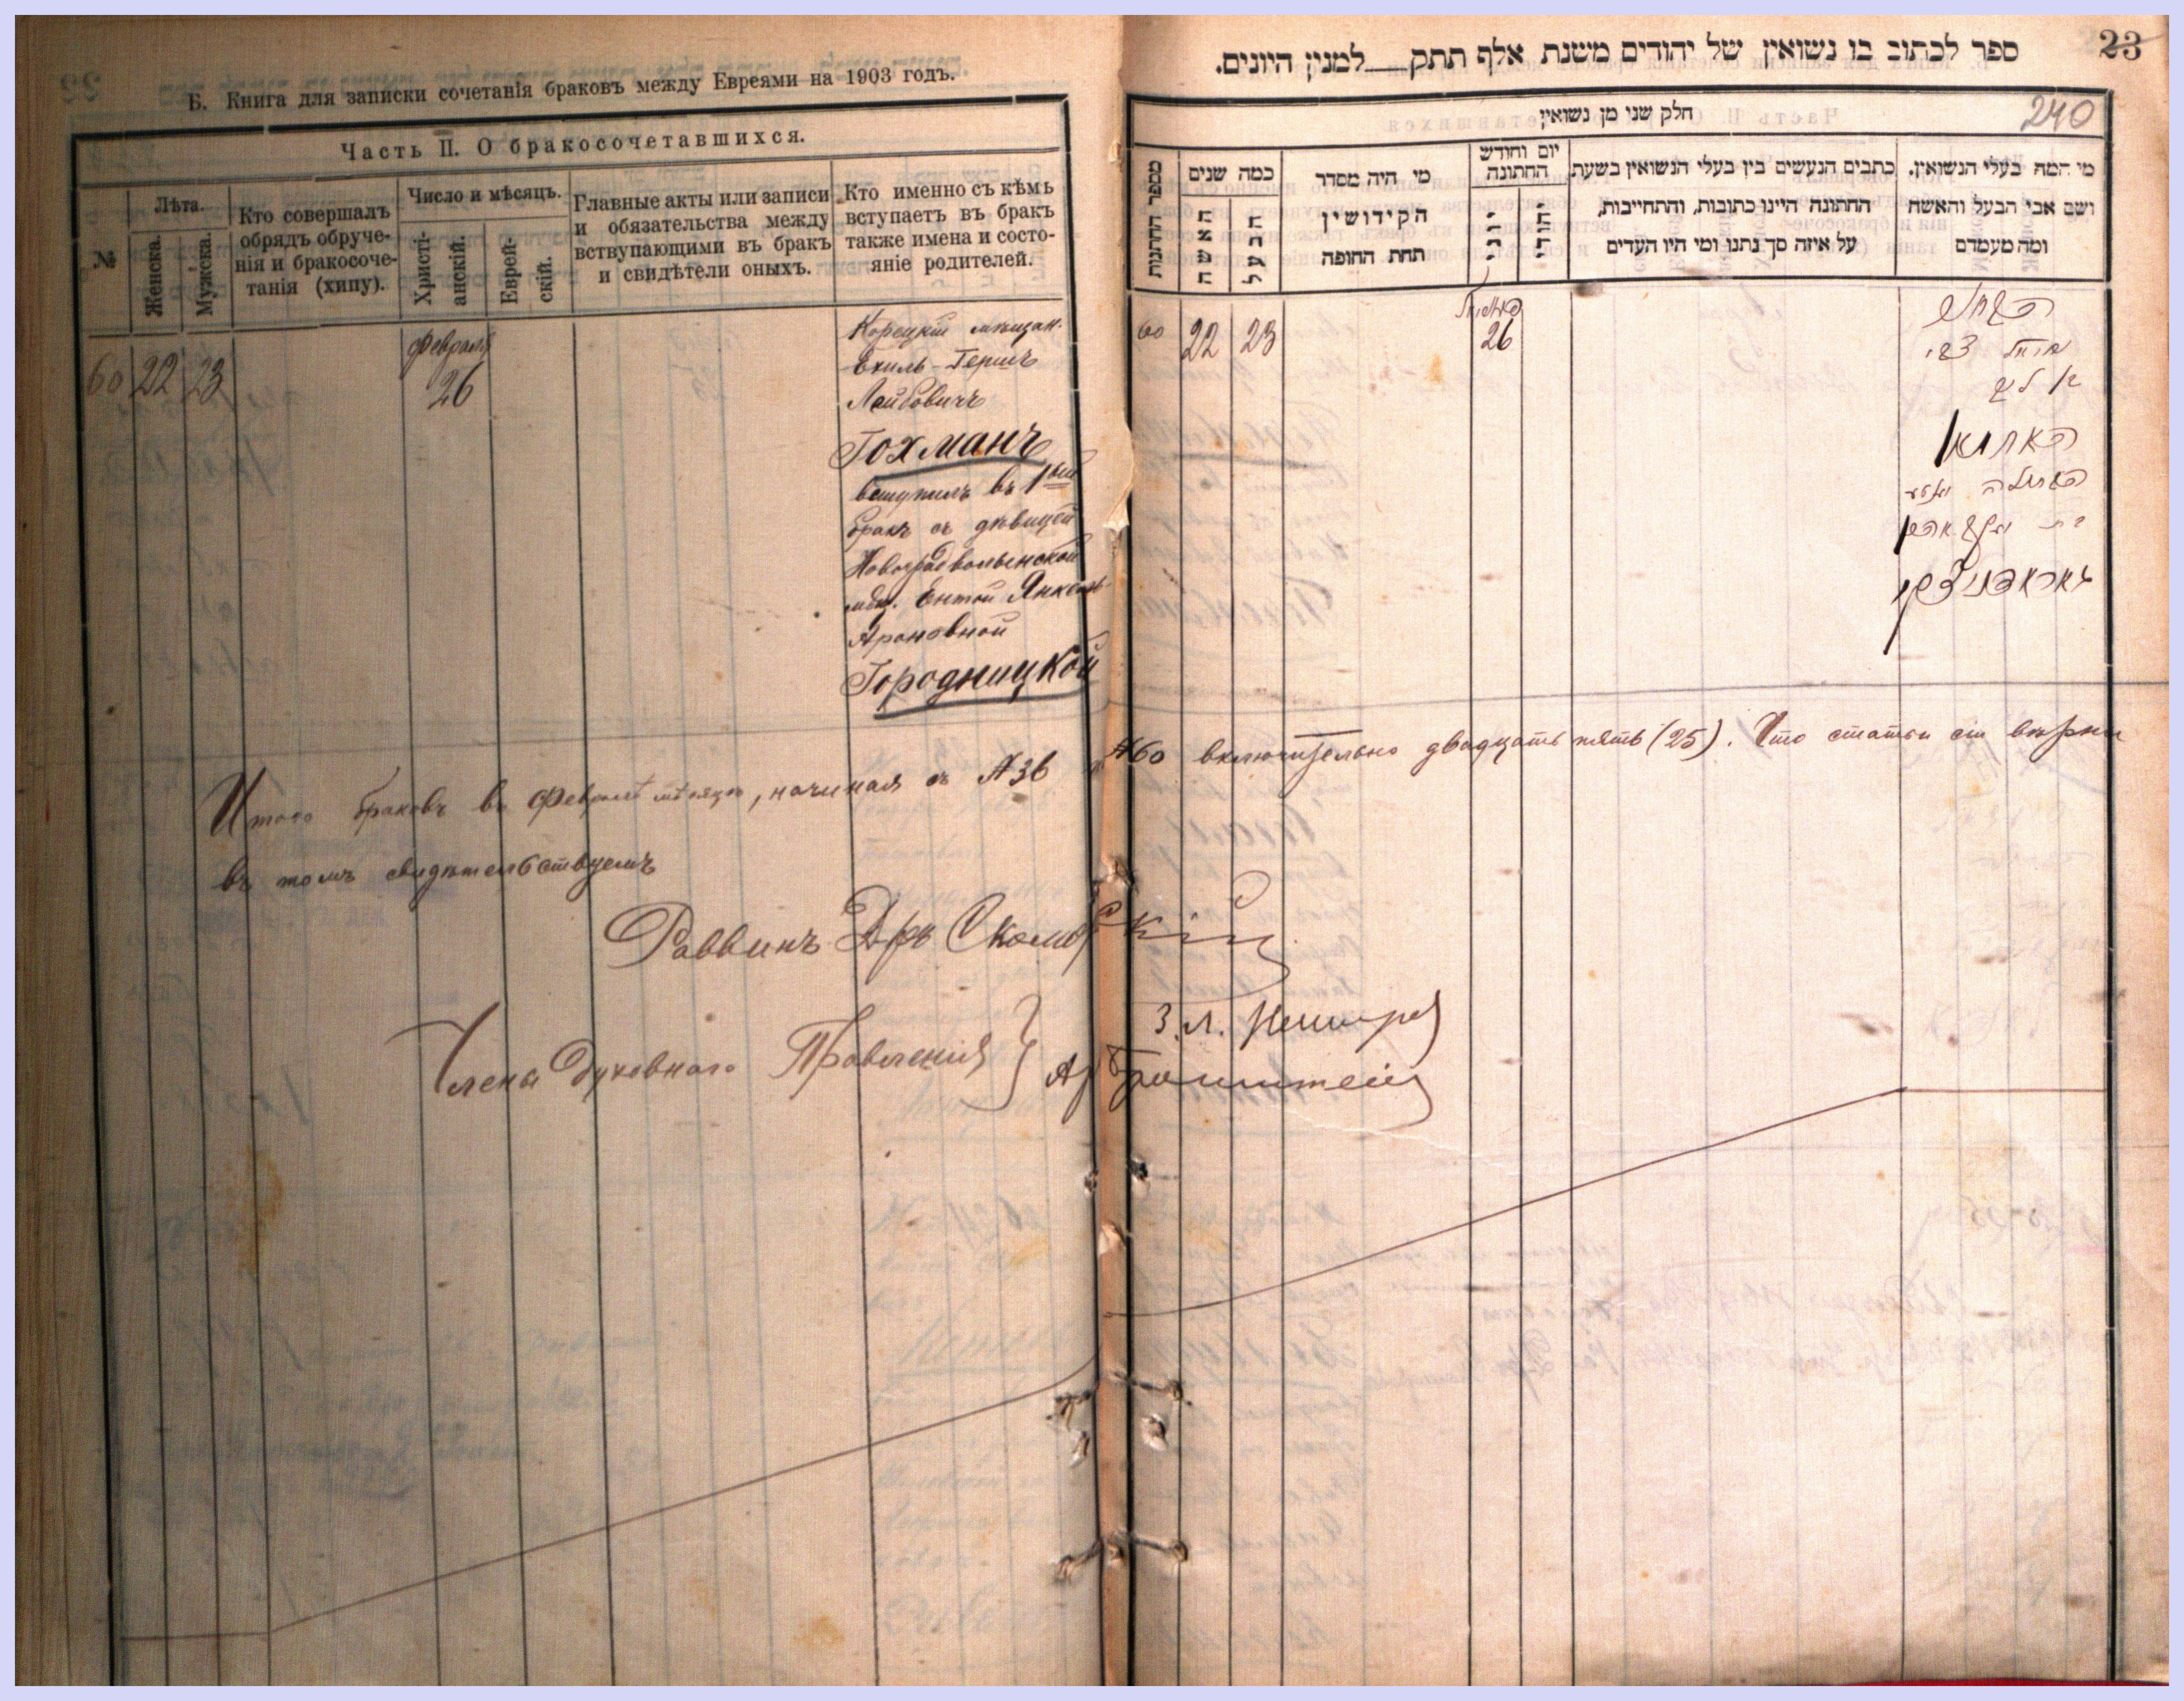 Б. Книга для записки сочетанія браковъ между Евреями на 1903 годъ.
Часть II. О бракосочетавшихся.
№
Лѣта.
Женска.
Мужска.
Кто совершалъ
обрядъ обруче-
нія и бракосоче-
танія (хипу).
Число и мѣсяцъ.
Христі-
анскій.
Еврей-
скій.
Главные акты или записи
и обязательства между
вствупающими въ бракъ
и свидѣтели оныхъ.
Кто именно съ кѣмъ
вступаетъ въ бракъ
также имена и состо-
яніе родителей.
60 22 23
февраля
26
Корецкій мѣщан.
Ехиль-Гершъ
Лейбовичъ
Гохманъ
вступилъ въ 1ый
бракъ съ дѣвицей
Новоградволынской
мѣщ. Ентой Янкель-
Ароновной
Городницкой
23
ספר לכתוב בו נשואין של יהודים משנת אלף תתק למנין היונים.
240
חלק שני מן נשואין
מספר החתונות
כמה שנים
האשה
הבעל
מי היה מסדר
הקידושין
תחת החופה
יום וחודש
החתונה
יוני
יהודי
כתבים הנעשים בין בעלי הנשואין בשעת
החתונה היינו כתובות, והתחייבות,
על איזה סך נתנו ומי היו העדים
מי המה בעלי הנשואין.
ושם אבי הבעל והאשה
ומה מעמדם
60 22 23
26
Итого браковъ въ Февралѣ мѣсяцѣ, начиная съ №36 №60 включительно двадцать пять (25). Что статьи сіи вѣрны
въ томъ свидѣтельствуемъ
Раввинъ Д-ръ
Члены Духовнаго Правленія }
З. Л.
Бронштейн